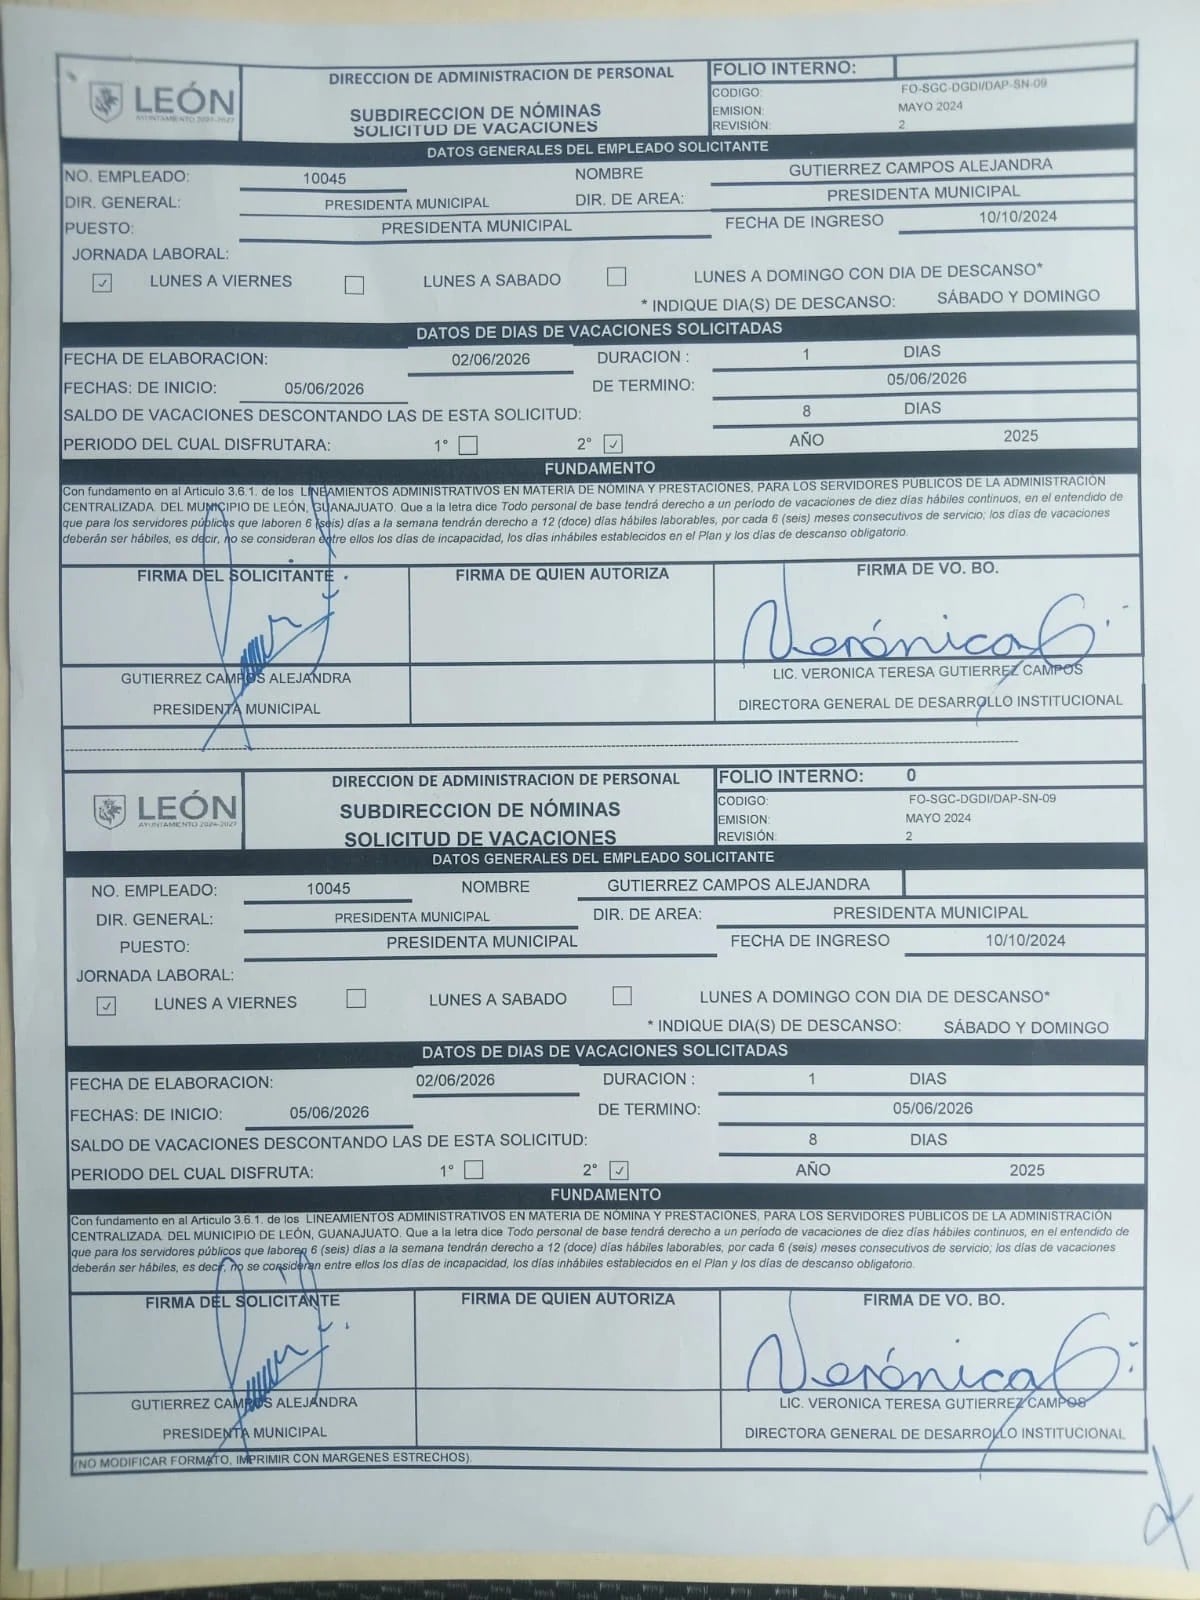 LEÓN
AYUNTAMIENTO 2024-2027
DIRECCION DE ADMINISTRACION DE PERSONAL
SUBDIRECCION DE NÓMINAS
SOLICITUD DE VACACIONES
FOLIO INTERNO:
CODIGO: FO-SGC-DGDI/DAP-SN-09
EMISION: MAYO 2024
REVISIÓN: 2
DATOS GENERALES DEL EMPLEADO SOLICITANTE
NO. EMPLEADO: 10045 NOMBRE GUTIERREZ CAMPOS ALEJANDRA
DIR. GENERAL: PRESIDENTA MUNICIPAL DIR. DE AREA: PRESIDENTA MUNICIPAL
PUESTO: PRESIDENTA MUNICIPAL FECHA DE INGRESO 10/10/2024
JORNADA LABORAL:
✓ LUNES A VIERNES LUNES A SABADO LUNES A DOMINGO CON DIA DE DESCANSO*
* INDIQUE DIA(S) DE DESCANSO: SÁBADO Y DOMINGO
DATOS DE DIAS DE VACACIONES SOLICITADAS
FECHA DE ELABORACION: 02/06/2026 DURACION : 1 DIAS
FECHAS: DE INICIO: 05/06/2026 DE TERMINO: 05/06/2026
SALDO DE VACACIONES DESCONTANDO LAS DE ESTA SOLICITUD: 8 DIAS
PERIODO DEL CUAL DISFRUTARA: 1° 2° ✓ AÑO 2025
FUNDAMENTO
Con fundamento en al Articulo 3.6.1. de los LINEAMIENTOS ADMINISTRATIVOS EN MATERIA DE NÓMINA Y PRESTACIONES, PARA LOS SERVIDORES PÚBLICOS DE LA ADMINISTRACIÓN
CENTRALIZADA. DEL MUNICIPIO DE LEÓN, GUANAJUATO. Que a la letra dice Todo personal de base tendrá derecho a un período de vacaciones de diez días hábiles continuos, en el entendido de
que para los servidores públicos que laboren 6 (seis) días a la semana tendrán derecho a 12 (doce) días hábiles laborables, por cada 6 (seis) meses consecutivos de servicio; los días de vacaciones
deberán ser hábiles, es decir, no se consideran entre ellos los días de incapacidad, los días inhábiles establecidos en el Plan y los días de descanso obligatorio.
FIRMA DEL SOLICITANTE FIRMA DE QUIEN AUTORIZA FIRMA DE VO. BO.
Verónica G.
GUTIERREZ CAMPOS ALEJANDRA LIC. VERONICA TERESA GUTIERREZ CAMPOS
PRESIDENTA MUNICIPAL DIRECTORA GENERAL DE DESARROLLO INSTITUCIONAL
LEÓN
AYUNTAMIENTO 2024-2027
DIRECCION DE ADMINISTRACION DE PERSONAL
SUBDIRECCION DE NÓMINAS
SOLICITUD DE VACACIONES
FOLIO INTERNO: 0
CODIGO: FO-SGC-DGDI/DAP-SN-09
EMISION: MAYO 2024
REVISIÓN: 2
DATOS GENERALES DEL EMPLEADO SOLICITANTE
NO. EMPLEADO: 10045 NOMBRE GUTIERREZ CAMPOS ALEJANDRA
DIR. GENERAL: PRESIDENTA MUNICIPAL DIR. DE AREA: PRESIDENTA MUNICIPAL
PUESTO: PRESIDENTA MUNICIPAL FECHA DE INGRESO 10/10/2024
JORNADA LABORAL:
✓ LUNES A VIERNES LUNES A SABADO LUNES A DOMINGO CON DIA DE DESCANSO*
* INDIQUE DIA(S) DE DESCANSO: SÁBADO Y DOMINGO
DATOS DE DIAS DE VACACIONES SOLICITADAS
FECHA DE ELABORACION: 02/06/2026 DURACION : 1 DIAS
FECHAS: DE INICIO: 05/06/2026 DE TERMINO: 05/06/2026
SALDO DE VACACIONES DESCONTANDO LAS DE ESTA SOLICITUD: 8 DIAS
PERIODO DEL CUAL DISFRUTA: 1° 2° ✓ AÑO 2025
FUNDAMENTO
Con fundamento en al Articulo 3.6.1. de los LINEAMIENTOS ADMINISTRATIVOS EN MATERIA DE NÓMINA Y PRESTACIONES, PARA LOS SERVIDORES PÚBLICOS DE LA ADMINISTRACIÓN
CENTRALIZADA. DEL MUNICIPIO DE LEÓN, GUANAJUATO. Que a la letra dice Todo personal de base tendrá derecho a un período de vacaciones de diez días hábiles continuos, en el entendido de
que para los servidores públicos que laboren 6 (seis) días a la semana tendrán derecho a 12 (doce) días hábiles laborables, por cada 6 (seis) meses consecutivos de servicio; los días de vacaciones
deberán ser hábiles, es decir, no se consideran entre ellos los días de incapacidad, los días inhábiles establecidos en el Plan y los días de descanso obligatorio.
FIRMA DEL SOLICITANTE FIRMA DE QUIEN AUTORIZA FIRMA DE VO. BO.
Verónica G.
GUTIERREZ CAMPOS ALEJANDRA LIC. VERONICA TERESA GUTIERREZ CAMPOS
PRESIDENTA MUNICIPAL DIRECTORA GENERAL DE DESARROLLO INSTITUCIONAL
(NO MODIFICAR FORMATO, IMPRIMIR CON MARGENES ESTRECHOS).